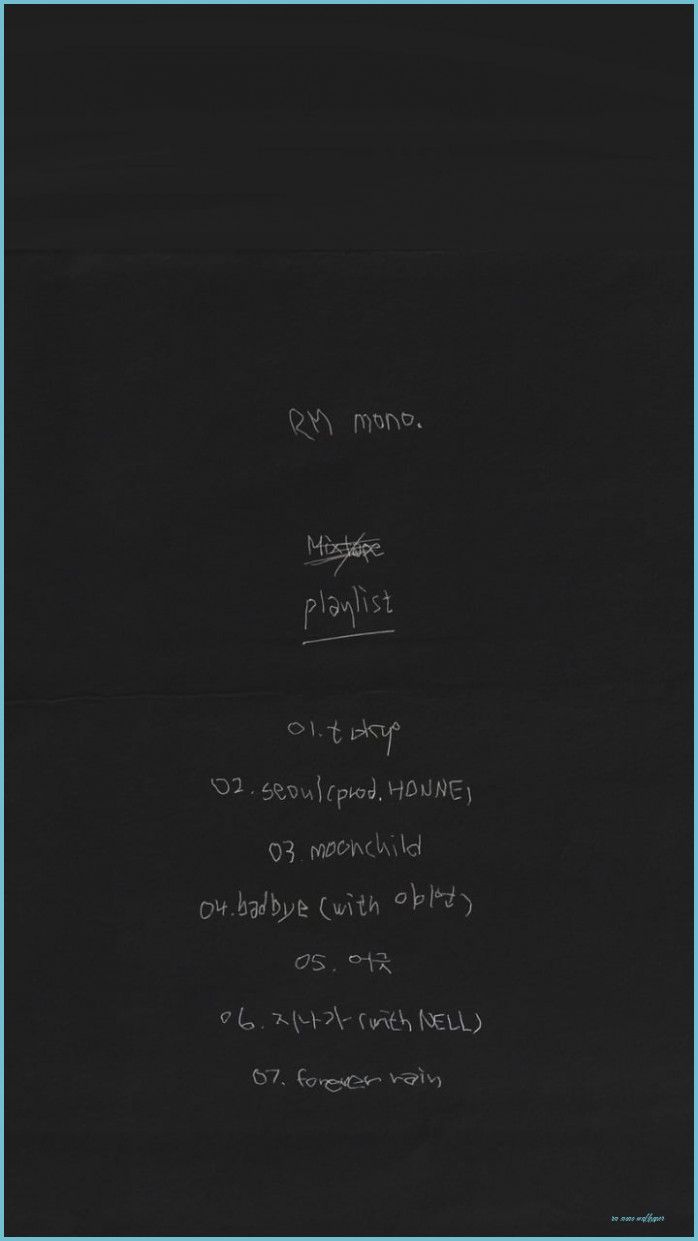 RM mono.
Mixtape
playlist
01. tokyo
02. seoul (prod. HONNE)
03. moonchild
04. badbye (with 이이언)
05. 어긋
06. 지나가 (with NELL)
07. forever rain
rm mono wallpaper